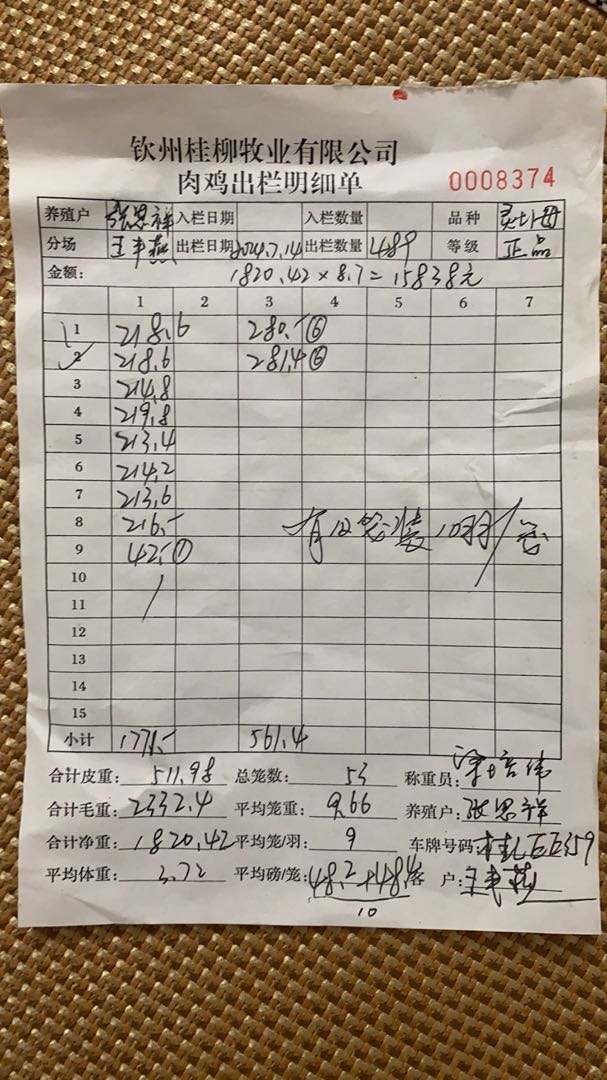 钦州桂柳牧业有限公司
肉鸡出栏明细单 0008374
养殖户 张思祥 入栏日期 入栏数量 品种 灵山母
分场 王丰燕 出栏日期 2024.7.14 出栏数量 489 等级 正品
金额: 1820.42×8.7=15838元
1 2 3 4 5 6 7
1 218.6 280.- ⑥
2 218.6 281.4 ⑥
3 214.8
4 219.8
5 213.4
6 214.2
7 213.6
8 216.- 有12笼装10羽/笼
9 42.- ①
10
11
12
13
14
15
小计 1771.- 561.4
合计皮重: 511.98 总笼数: 53 称重员:
合计毛重: 2332.4 平均笼重: 9.66 养殖户: 张思祥
合计净重: 1820.42 平均笼/羽: 9 车牌号码:
平均体重: 3.72 平均磅/笼: 48.2+48.4 客户: 王丰燕
10